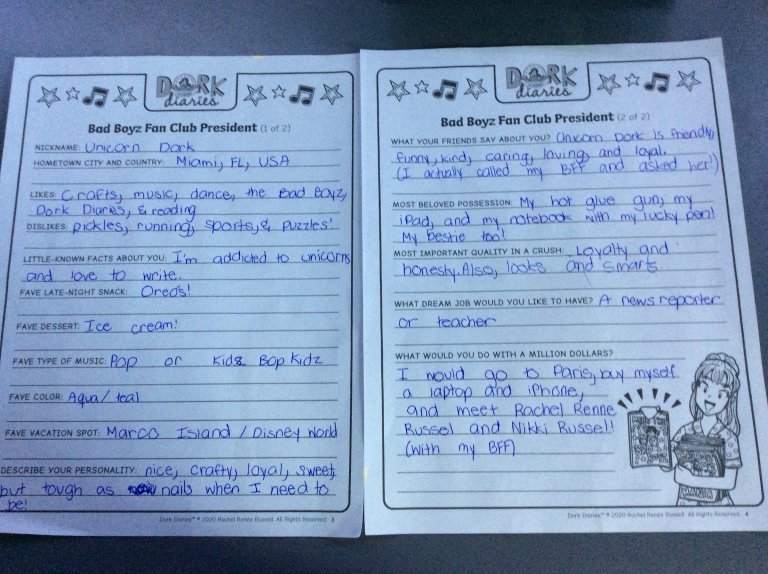 DORK
diaries
Bad Boyz Fan Club President (1 of 2)
NICKNAME: Unicorn Dork
HOMETOWN CITY AND COUNTRY: Miami, FL, USA
LIKES: Crafts, music, dance, the Bad Boyz,
Dork Diares, & reading
DISLIKES: pickles, running, sports, & puzzles!
LITTLE-KNOWN FACTS ABOUT YOU: I'm addicted to unicorns
and love to write.
FAVE LATE-NIGHT SNACK: Oreos!
FAVE DESSERT: Ice cream!
FAVE TYPE OF MUSIC: Pop or Kidz Bop Kidz
FAVE COLOR: Aqua/teal
FAVE VACATION SPOT: Marco Island / Disney World
DESCRIBE YOUR PERSONALITY: nice, crafty, loyal, sweet,
but tough as nails when I need to
be!
Dork Diaries™ © 2020 Rachel Renée Russell. All Rights Reserved. 3
DORK
diaries
Bad Boyz Fan Club President (2 of 2)
WHAT YOUR FRIENDS SAY ABOUT YOU? Unicorn Dork is friendly,
funny, kind, caring, loving, and loyal.
(I actually called my BFF and asked her!)
MOST BELOVED POSSESSION: My hot glue gun, my
iPad, and my notebook with my lucky pen!
My bestie too!
MOST IMPORTANT QUALITY IN A CRUSH: Loyalty and
honesty. Also, looks and smarts
WHAT DREAM JOB WOULD YOU LIKE TO HAVE? A news reporter
or teacher
WHAT WOULD YOU DO WITH A MILLION DOLLARS?
I would go to Paris, buy myself
a laptop and iPhone,
and meet Rachel Renne
Russel and Nikki Russel!
(with my BFF)
Dork Diaries™ © 2020 Rachel Renée Russell. All Rights Reserved. 4